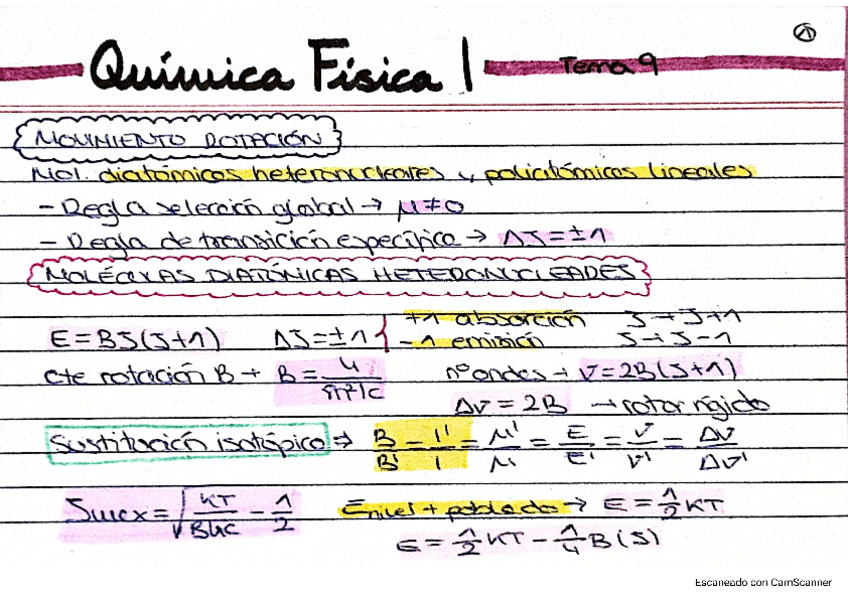 ①
Química Física 1 Tema 9
MOVIMIENTO ROTACIÓN
Mol. diatómicas heteronucleares y poliatómicas lineales
- Regla selección global → μ≠0
- Regla de transición específica → ΔJ=±1
MOLÉCULAS DIATÓNICAS HETERONUCLEADES
E=BJ(J+1) ΔJ=±1 { +1 absorción J→J+1
-1 emisión J→J-1
cte rotación B → B = h/8π²Ic nº ondas → ṽ=2B(J+1)
Δṽ = 2B → rotor rígido
Sustitución isotópica ⇒ B/B' = I'/I = μ'/μ = E/E' = ṽ/ṽ' = Δṽ/Δṽ'
Jmax = √(KT/2Bhc) - 1/2 Enivel + poblado → E = 1/2 KT
E = 1/2 KT - 1/4 B (J)
Escaneado con CamScanner